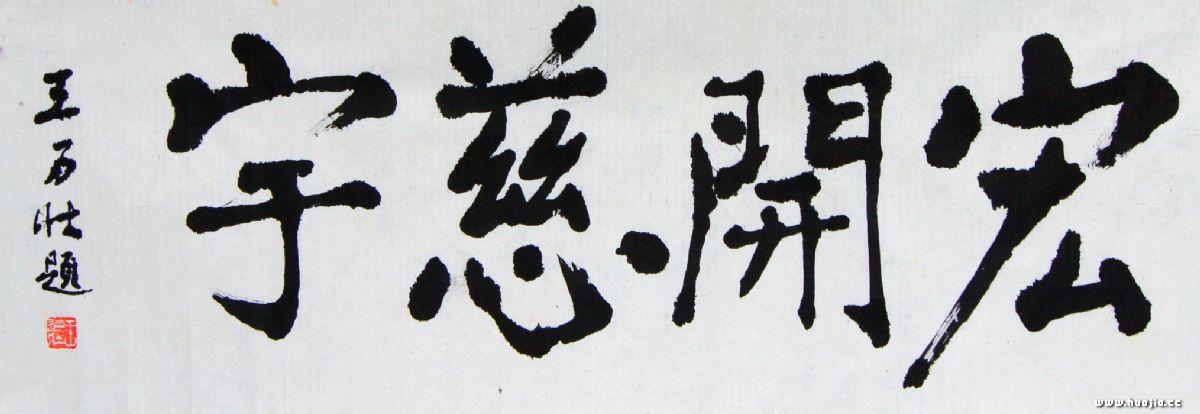 宏開慈宇
王万壮题
www.huajia.cc